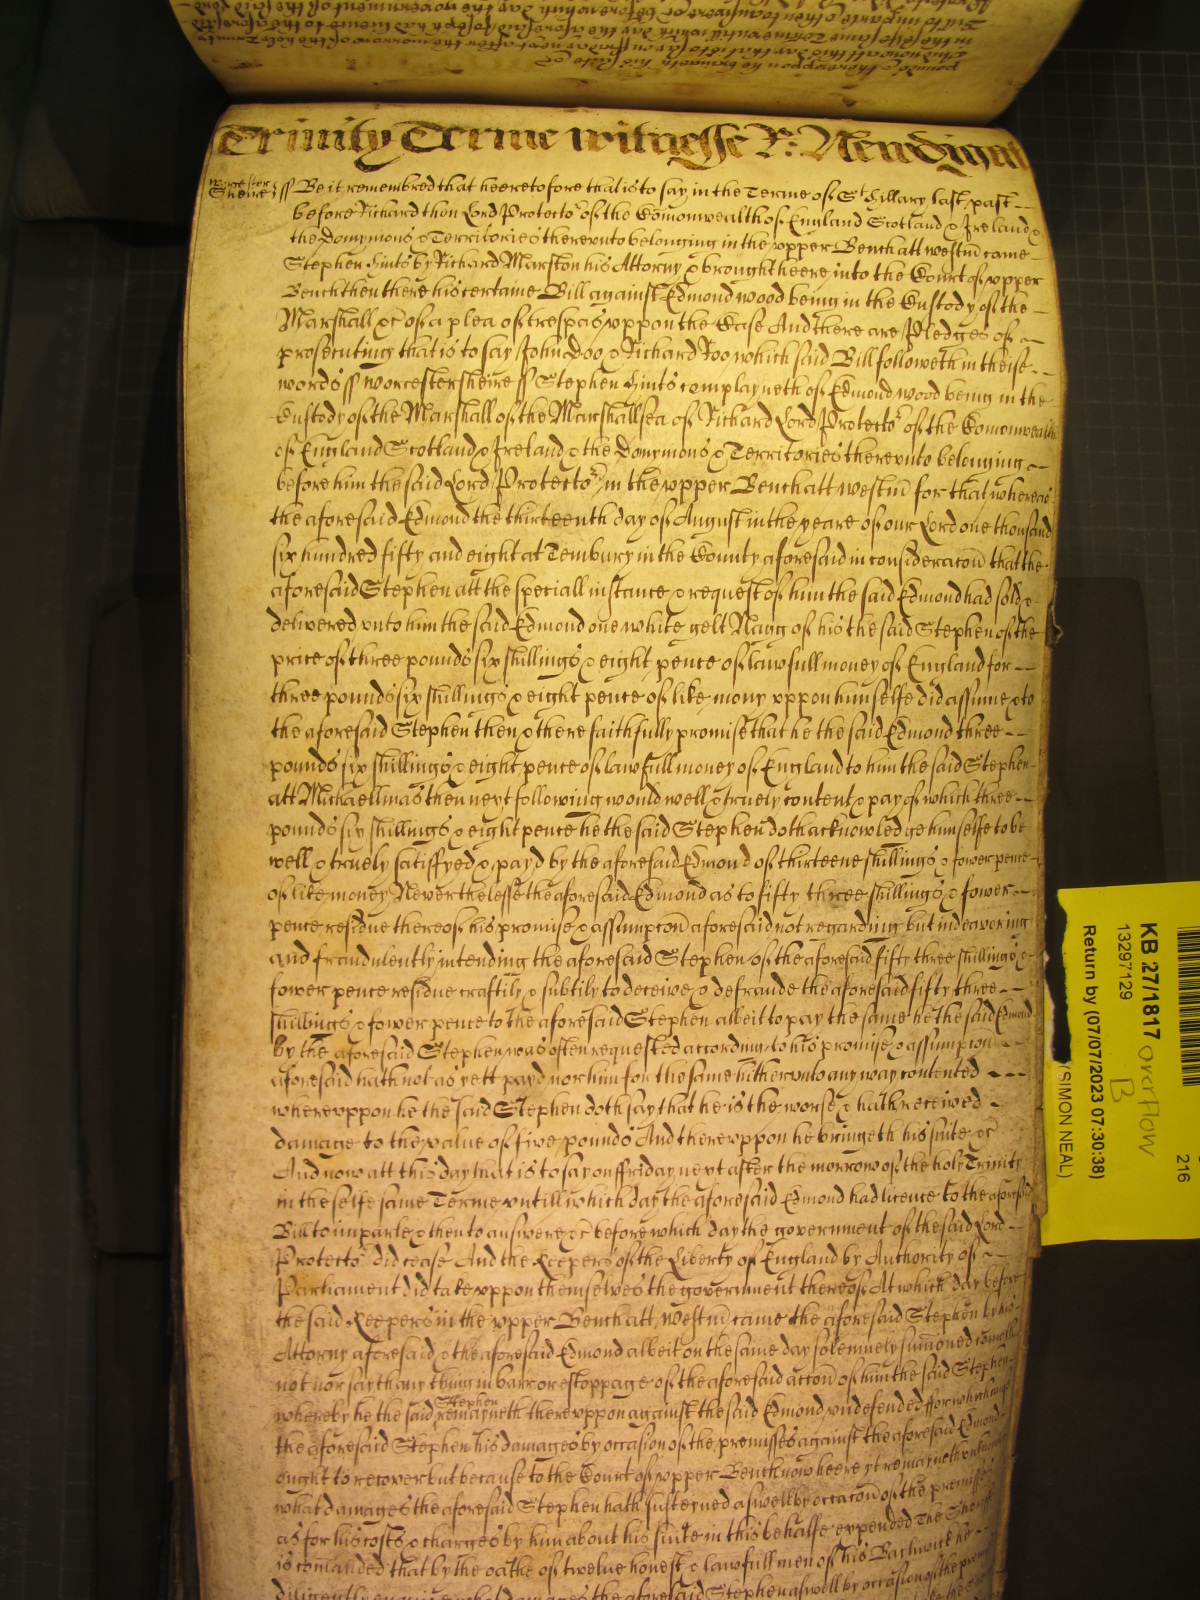 Trinity Terme witnesse R: Newdigat
Worcester
Sheire ss Be it remembred that heeretofore that is to say in the Terme of St. Hillary last past
before Richard then Lord Protector of the Comonwealth of England Scotland & Ireland &
the Domynions & Territories thereunto belonging in the upper Bench att Westm came
Stephen Hints by Richard Marston his Attorny & brought heere into the Court of upper
Bench then there his certaine Bill against Edmond Wood being in the Custody of the
Marshall &c of a plea of trespas uppon the Case And there are Pledges of
prosecuting that is to say John Doo & Richard Roo which said Bill followeth in theise
words ss Worcestersheire ss Stephen Hints complayneth of Edmond Wood being in the
Custody of the Marshall of the Marshallsea of Richard Lord Protector of the Comonwealth
of England Scotland & Ireland & the Domynions & Territories thereunto belonging
before him the said Lord Protector in the upper Bench att Westm for that whereas
the aforesaid Edmond the thirteenth day of August in the yeare of our Lord one thousand
six hundred fifty and eight at Tembury in the County aforesaid in consideracon that the
aforesaid Stephen att the speciall instance & request of him the said Edmond had sold &
delivered unto him the said Edmond one white gelt Nagg of his the said Stephen of the
price of three pounds six shillings & eight pence of lawfull money of England for
three pounds six shillings & eight pence of like mony uppon himselfe did assume & to
the aforesaid Stephen then & there faithfully promise that he the said Edmond three
pounds six shillings & eight pence of lawfull money of England to him the said Stephen
att Michaellmas then next following would well & truely content & pay of which three
pounds six shillings & eight pence he the said Stephen doth acknowledge himselfe to be
well & truely satisfyed & payd by the aforesaid Edmond of thirteene shillings & fower pence
of like money Neverthelesse the aforesaid Edmond as to fifty three shillings & fower
pence residue thereof his promise & assumpcon aforesaid not regarding but indeavoring
and fraudulently intending the aforesaid Stephen of the aforesaid fifty three shillings &
fower pence residue craftily & subtily to deceive & defraude the aforesaid fifty three
shillings & fower pence to the aforesaid Stephen albeit to pay the same he the said Edmond
by the aforesaid Stephen was often requested according to his promise & assumpcon
aforesaid hath not as yett payd nor him for the same hitherunto any way contented
whereuppon he the said Stephen doth say that he is the worse & hath received
damage to the value of five pounds And thereuppon he bringeth his suite &c
And now att this day that is to say on ffriday next after the morrow of the holy Trinity
in the selfe same Terme untill which day the aforesaid Edmond had licence to the aforesaid
Bill to imparle & then to answere &c before which day the government of the said Lord
Protector did cease And the Keepers of the Liberty of England by Authority of
Parliament did take uppon themselves the government thereof At which day before
the said Keepers in the upper Bench att Westm came the aforesaid Stephen by his
Attorny aforesaid & the aforesaid Edmond albeit on the same day solemnely sumoned cometh
not nor say thany thing in barr or estoppage of the aforesaid accon of him the said Stephen
whereby he the said Stephen remayneth thereuppon against the said Edmond undefended ffor which cause
the aforesaid Stephen his damages by occasion of the premisses against the aforesaid Edmond
ought to recover but because to the Court of upper Bench now heere yt remayneth unknowne
what damages the aforesaid Stephen hath susteyned aswell by occacon of the premisses
as for his costs & charges by him about his suite in this behalfe expended The Sheriff
is comanded that by the oathe of twelve honest & lawfull men of his Baylwick he
diligently enquire what damages the aforesaid Stephen aswell by occasion of the premisses
KB 27/1817 overflow
B
13297129
Return by (07/07/2023 07:30:38)
(SIMON NEAL)
216